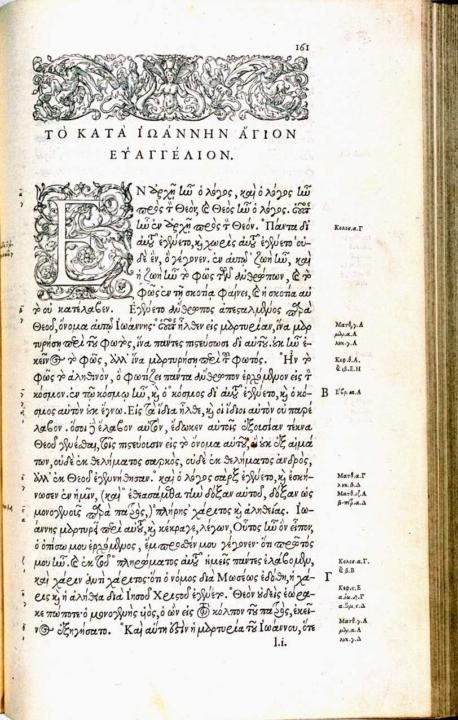 161
ΤΟ ΚΑΤΑ ΙΩΑΝΝΗΝ ΑΓΙΟΝ
ΕΥΑΓΓΕΛΙΟΝ.
ΕΝ ἀρχῇ ἦν ὁ λόγος, καὶ ὁ λόγος ἦν
πρὸς τὸν Θεὸν, καὶ Θεὸς ἦν ὁ λόγος. οὗτος
ἦν ἐν ἀρχῇ πρὸς τὸν Θεόν. Πάντα δι᾽
αὐτοῦ ἐγένετο, καὶ χωρὶς αὐτοῦ ἐγένετο οὐ-
δὲ ἓν, ὃ γέγονεν. ἐν αὐτῷ ζωὴ ἦν, καὶ
ἡ ζωὴ ἦν τὸ φῶς τῶν ἀνθρώπων, καὶ τὸ
φῶς ἐν τῇ σκοτίᾳ φαίνει, καὶ ἡ σκοτία αὐ
τὸ οὐ κατέλαβεν. Ἐγένετο ἄνθρωπος ἀπεσταλμένος παρὰ
Θεοῦ, ὄνομα αὐτῷ Ἰωάννης· οὗτος ἦλθεν εἰς μαρτυρίαν, ἵνα μαρ
τυρήσῃ περὶ τοῦ φωτὸς, ἵνα πάντες πιστεύσωσι δι᾽ αὐτοῦ. οὐκ ἦν
ἐκεῖνος τὸ φῶς, ἀλλ᾽ ἵνα μαρτυρήσῃ περὶ τοῦ φωτός. Ἦν τὸ
φῶς τὸ ἀληθινὸν, ὃ φωτίζει πάντα ἄνθρωπον ἐρχόμενον εἰς τὸν
κόσμον. ἐν τῷ κόσμῳ ἦν, καὶ ὁ κόσμος δι᾽ αὐτοῦ ἐγένετο, καὶ ὁ κό-
σμος αὐτὸν οὐκ ἔγνω. Εἰς τὰ ἴδια ἦλθε, καὶ οἱ ἴδιοι αὐτὸν οὐ παρέ
λαβον. ὅσοι δὲ ἔλαβον αὐτὸν, ἔδωκεν αὐτοῖς ἐξουσίαν τέκνα
Θεοῦ γενέσθαι, τοῖς πιστεύουσιν εἰς τὸ ὄνομα αὐτοῦ, οἳ οὐκ ἐξ αἱμά
των, οὐδὲ ἐκ θελήματος σαρκὸς, οὐδὲ ἐκ θελήματος ἀνδρὸς,
ἀλλ᾽ ἐκ Θεοῦ ἐγεννήθησαν. καὶ ὁ λόγος σὰρξ ἐγένετο, καὶ ἐσκή-
νωσεν ἐν ἡμῖν, (καὶ ἐθεασάμεθα τὴν δόξαν αὐτοῦ, δόξαν ὡς
μονογενοῦς παρὰ πατρός,) πλήρης χάριτος καὶ ἀληθείας. Ἰω-
άννης μαρτυρεῖ περὶ αὐτοῦ, καὶ κέκραγε, λέγων, Οὗτος ἦν ὃν εἶπον,
ὁ ὀπίσω μου ἐρχόμενος, ἔμπροσθέν μου γέγονεν· ὅτι πρῶτός
μου ἦν. Καὶ ἐκ τοῦ πληρώματος αὐτοῦ ἡμεῖς πάντες ἐλάβομεν,
καὶ χάριν ἀντὶ χάριτος· ὅτι ὁ νόμος διὰ Μωσέως ἐδόθη, ἡ χά-
ρις καὶ ἡ ἀλήθεια διὰ Ἰησοῦ Χριστοῦ ἐγένετο. Θεὸν οὐδεὶς ἑώρα-
κε πώποτε· ὁ μονογενὴς υἱὸς, ὁ ὢν εἰς τὸν κόλπον τοῦ πατρὸς, ἐκεῖ-
νος ἐξηγήσατο. Καὶ αὕτη ἐστὶν ἡ μαρτυρία τοῦ Ἰωάννου, ὅτε
I.i.
Κολοσ.α.Γ
Ματθ.γ.Α
μάρ.α.Α
λυκ.γ.Α
Β
Ματθ.α.Γ
λυκ.β.Δ
Κολοσ.α.Γ.
καὶ β.Β
Γ
Ματθ.γ.Α
μάρ.α.Α
λυκ.γ.Δ